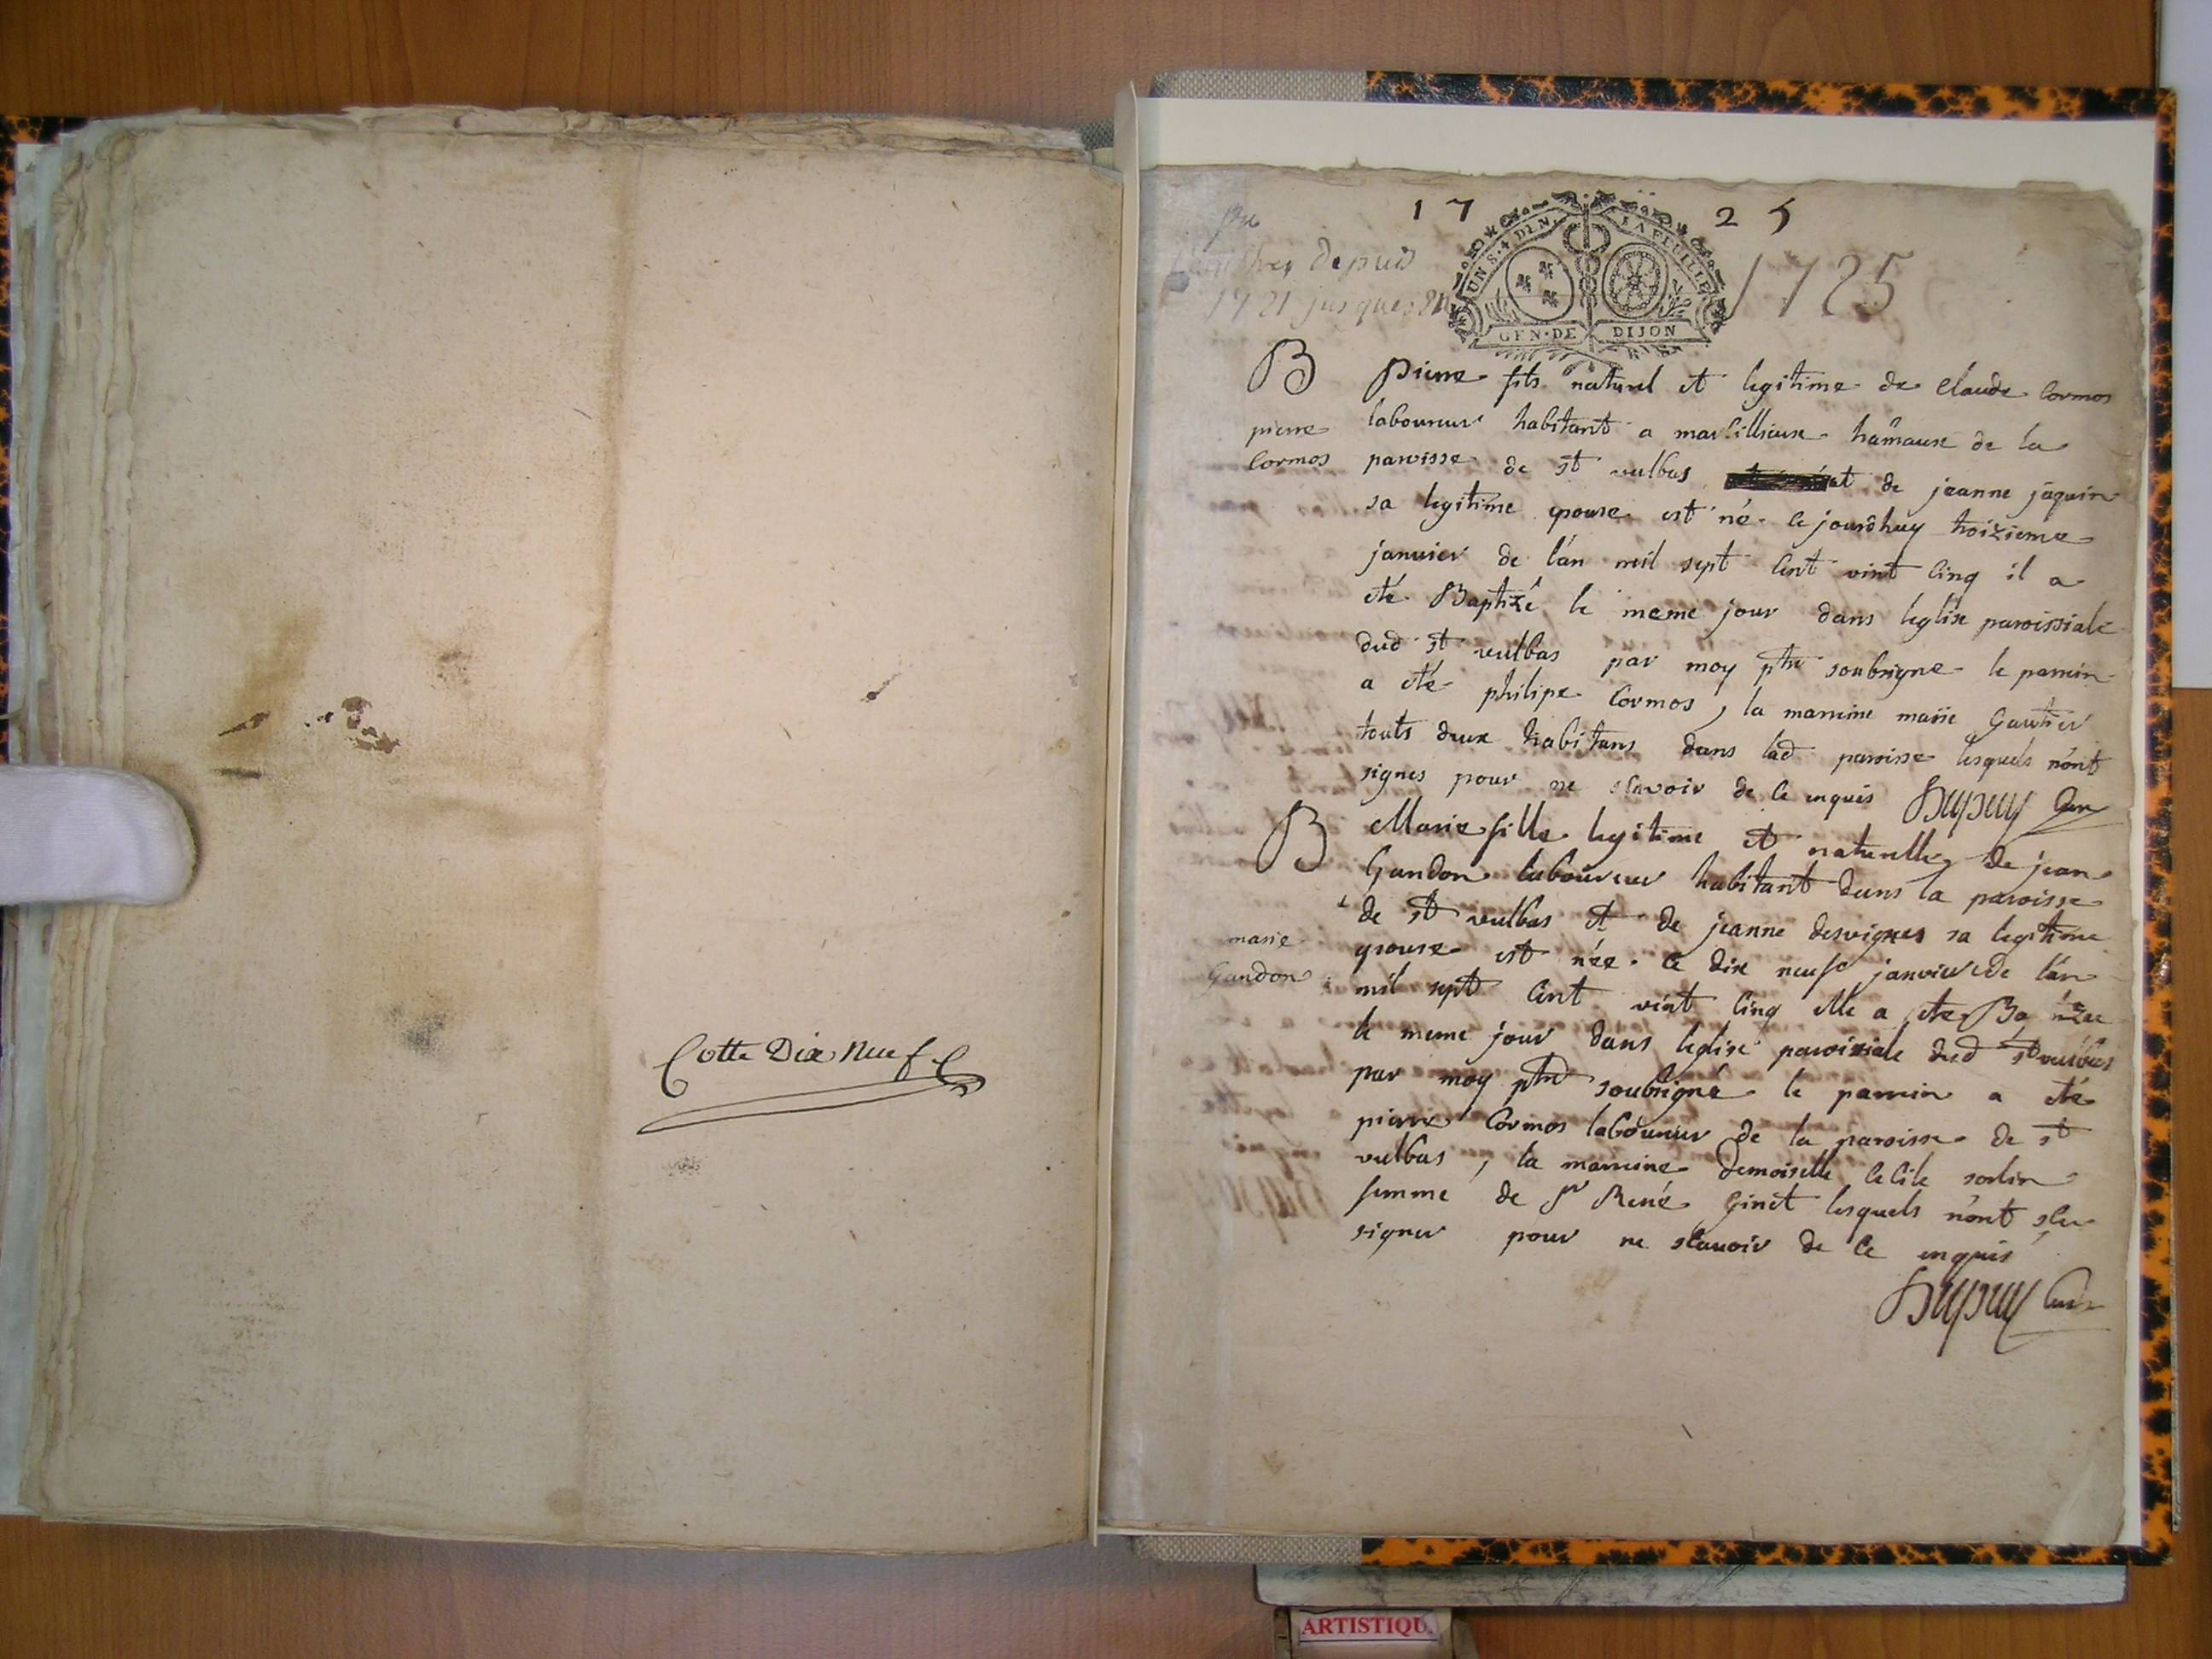 Cotte Dix neuf
17 25
UN S. 4 DEN. LA FEUILLE
GEN. DE DIJON
1725
depuis
1721 jusques
B
pierre
Cormos
Pierre fils naturel et legitime de Claude Cormos
laboureur habitant a marcillieux hamaux de la
paroisse de st vulbas et de jeanne jaquin
sa legitime epouse est né ce jourdhuy troizieme
janvier de l'an mil sept cent vint cinq il a
eté Baptizé le meme jour dans leglise paroissiale
dud st vulbas par moy ptre soubsigne le parrin
a eté philipe Cormos, la marrine marie Gautier
touts deux habitans dans lad paroisse lesquels n'ont
signes pour ne scavoir de ce enquis Dupuy Cure
B
marie
Gandon
Marie fille legitime et naturelle de jean
Gandon laboureur habitant dans la paroisse
de st vulbas et de jeanne desvignes sa legitime
epouse est née ce dix neufe janvier de l'an
mil sept cent vint cinq elle a ete Ba tizée
le meme jour dans leglise paroissiale dud st vulbas
par moy ptre soubsigné le parrin a eté
pierre Cormos laboureur de la paroisse de st
vulbas, la marrine demoiselle Cecile sorlin
femme de Sr René Ginet lesquels n'ont sceu
signer pour ne scavoir de ce enquis
Dupuy Cure
ARTISTIQU